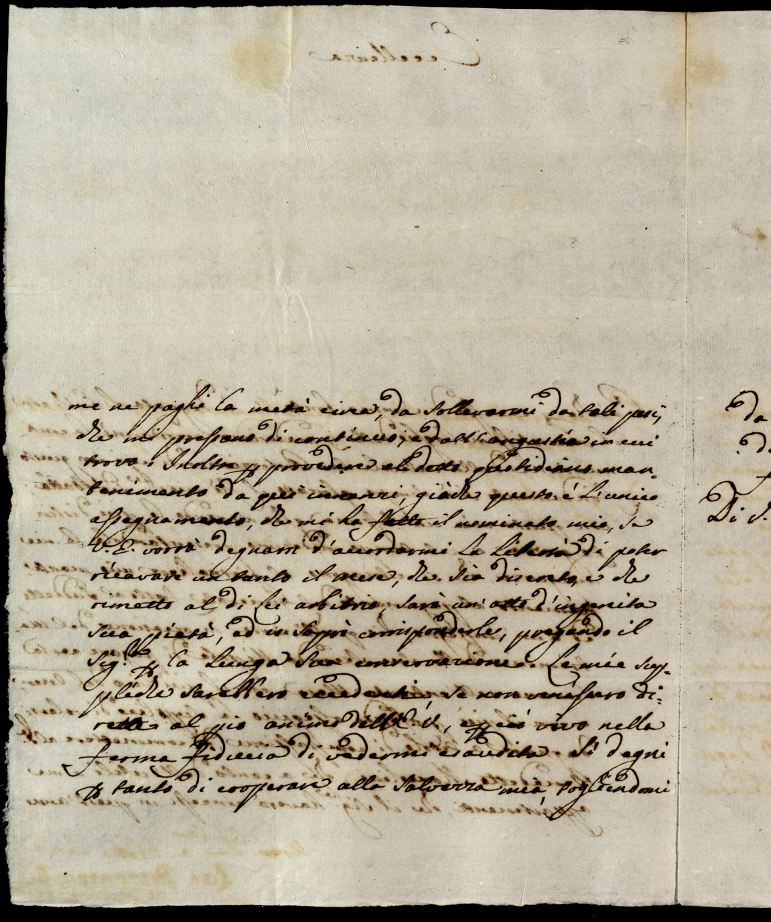 me ne paghi la metà circa, da sollevarmi da tali pesi,
che mi pressano di continuo, e dall'angustia in cui
trovo: Inoltre provedere al detto quotidiano man-
tenimento da quì innanzi, giachè questo è l'unico
assegnamento, che mi ha fatto il nominato mio, se
V. E. vorrà degnarsi d'accordarmi la libertà di poter
ricavare un tanto il mese, che sia discreto, e che
rimetto al di Lei arbitrio, sarà un'atto d'ingenita
sua pietà, ed io saprò corrisponderle, pregando il
Sig.re p la lunga sua conservazione. Le mie sup-
pliche sarebbero eccedenti se non venissero di-
rette al pio animo dell'E. V., e p ciò vivo nella
ferma fiducia di vedermi esaudita. Si degni
p tanto di cooperare alla salvezza mia, togliendomi
da
Di